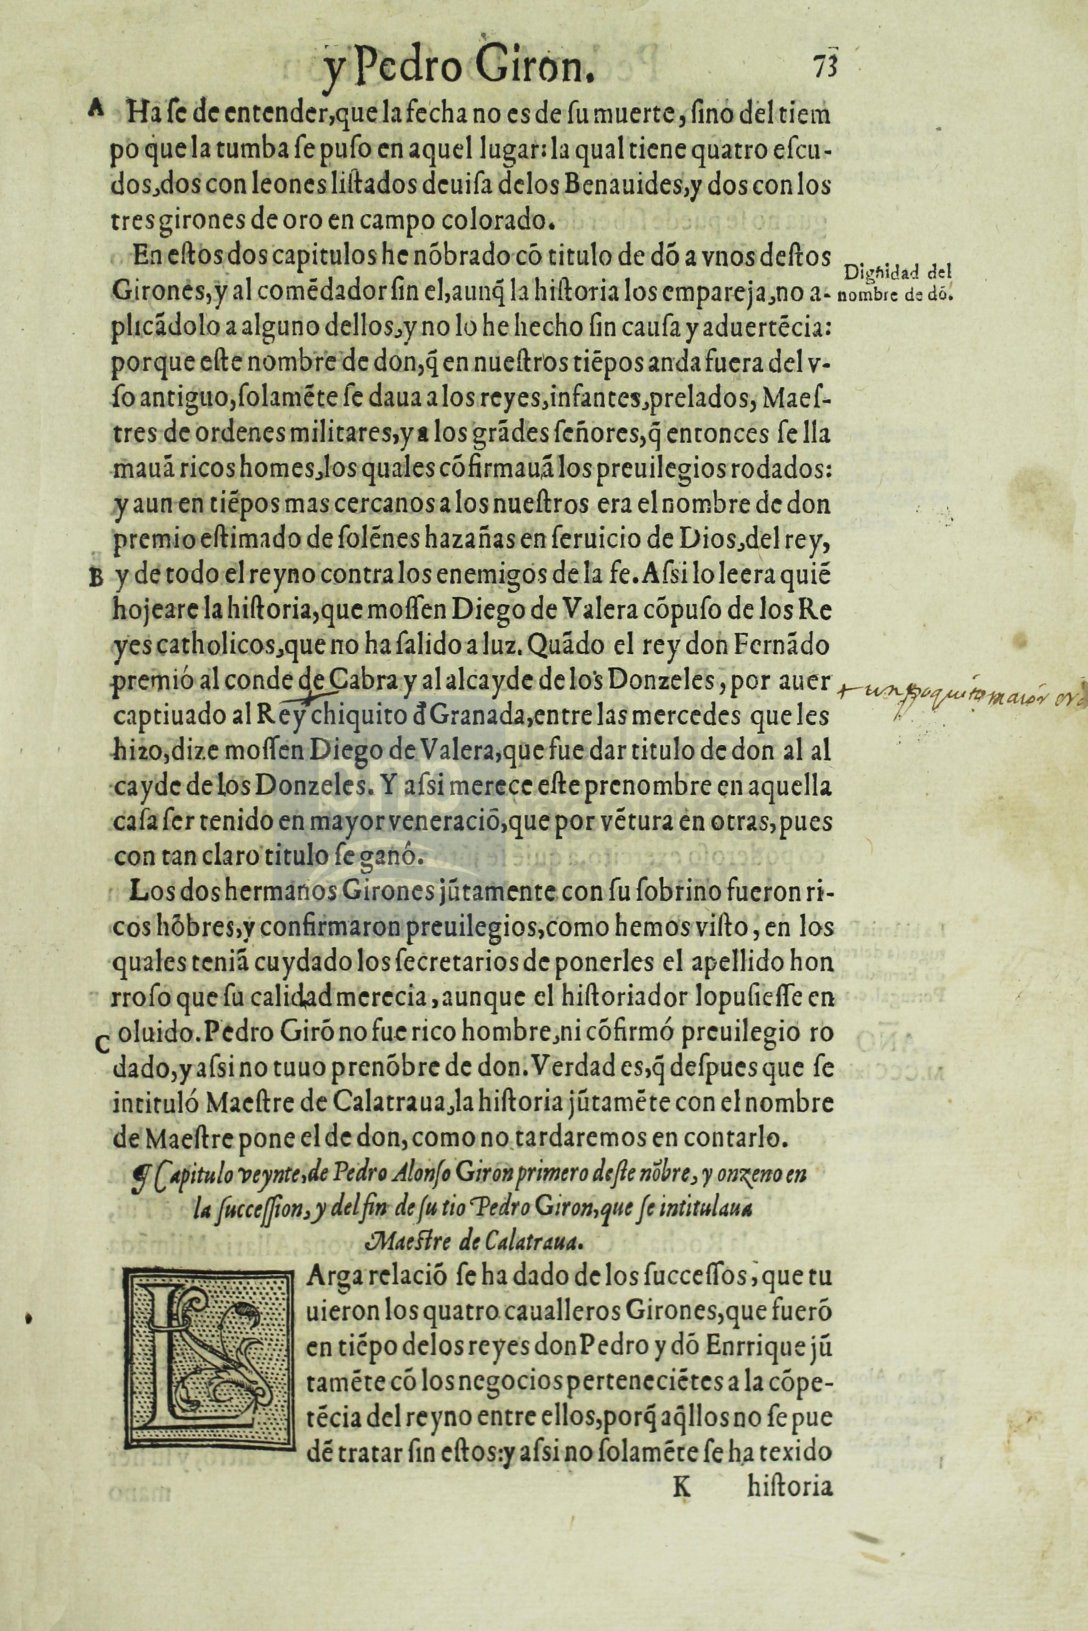 y Pedro Giron.
73
A
Ha se de entender,que la fecha no es de ſu muerte, ſino del tiem
po que la tumba ſe puſo en aquel lugar: la qual tiene quatro eſcu-
dos,dos con leones liſtados deuiſa delos Benauides,y dos con los
tres girones de oro en campo colorado.
En eſtos dos capitulos he nõbrado cõ titulo de dõ a vnos deſtos
Girones,y al comẽdador ſin el,aunq̃ la hiſtoria los empareja,no a-
plicãdolo a alguno dellos,y no lo he hecho ſin cauſa y aduertẽcia:
porque eſte nombre de don,q̃ en nueſtros tiẽpos anda fuera del v-
ſo antiguo,ſolamẽte ſe daua a los reyes,infantes,prelados, Maeſ-
tres de ordenes militares,y a los grãdes ſeñores,q̃ entonces ſe lla
mauã ricos homes,los quales cõfirmauã los preuilegios rodados:
y aun en tiẽpos mas cercanos a los nueſtros era el nombre de don
premio eſtimado de ſolẽnes hazañas en ſeruicio de Dios,del rey,
B
y de todo el reyno contra los enemigos de la fe. Aſsi lo leera quiẽ
hojeare la hiſtoria,que moſſen Diego de Valera cõpuſo de los Re
yes catholicos,que no ha ſalido a luz. Quãdo el rey don Fernãdo
premió al conde de Cabra y al alcayde de los Donzeles, por auer
captiuado al Rey chiquito đ Granada,entre las mercedes que les
hizo,dize moſſen Diego de Valera,que fue dar titulo de don al al
cayde de los Donzeles. Y aſsi merece eſte prenombre en aquella
caſa ſer tenido en mayor veneraciõ,que por vẽtura en otras,pues
con tan claro titulo ſe ganó.
Los dos hermanos Girones jũtamente con ſu ſobrino fueron ri-
cos hõbres,y confirmaron preuilegios,como hemos viſto, en los
quales teniã cuydado los ſecretarios de ponerles el apellido hon
rroſo que ſu calidad merecia, aunque el hiſtoriador lo puſieſſe en
C
oluido. Pedro Girõ no fue rico hombre,ni cõfirmó preuilegio ro
dado,y aſsi no tuuo prenõbre de don. Verdad es,q̃ deſpues que ſe
intituló Maeſtre de Calatraua,la hiſtoria jũtamẽte con el nombre
de Maeſtre pone el de don, como no tardaremos en contarlo.
Dignidad del
nombre de dõ.
+ un poquito maior
¶ Capitulo veynte,de Pedro Alonſo Giron primero deſte nõbre, y onzeno en
la ſucceſſion, y del fin de ſu tio Pedro Giron,que ſe intitulaua
Maeſtre de Calatraua.
LArga relaciõ ſe ha dado de los ſucceſſos, que tu
uieron los quatro caualleros Girones,que fuerõ
en tiẽpo delos reyes don Pedro y dõ Enrrique jũ
tamẽte cõ los negocios perteneciẽtes a la cõpe-
tẽcia del reyno entre ellos,porq̃ aq̃llos no ſe pue
dẽ tratar ſin eſtos:y aſsi no ſolamẽte ſe ha texido
K
hiſtoria